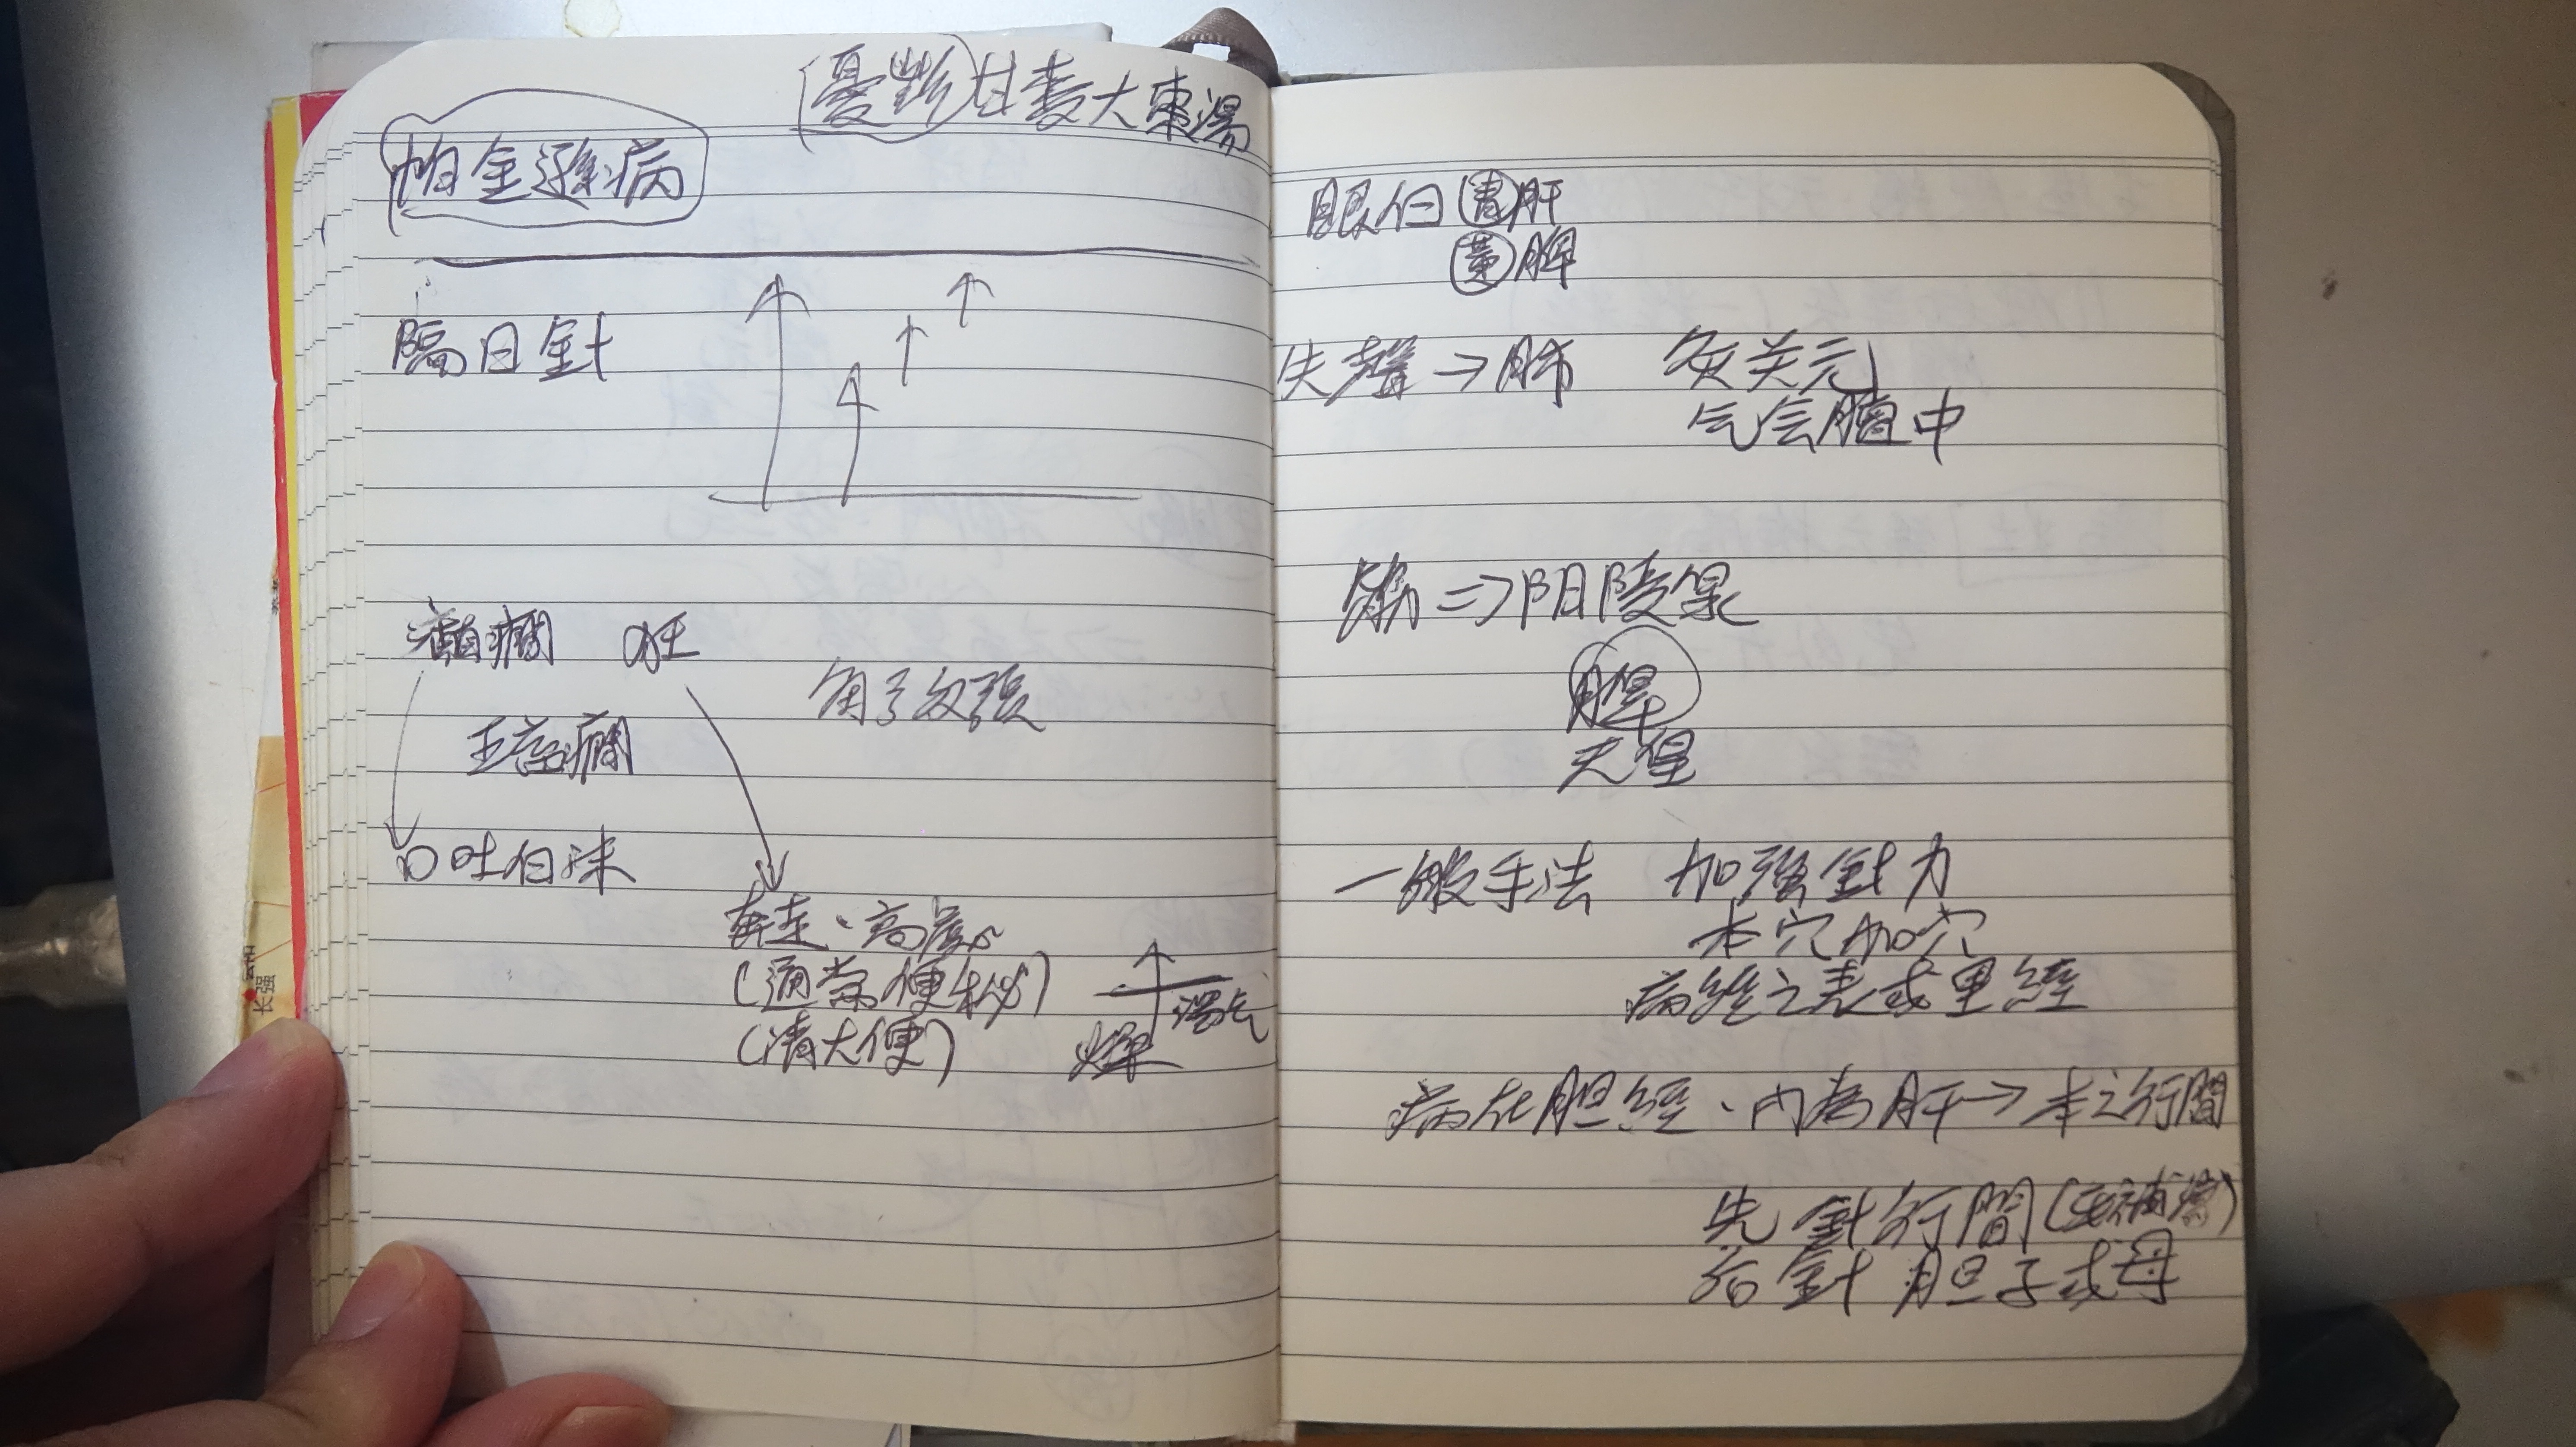 甘麦大棗湯
帕金遜病
隔日針
癲癇 狂
角弓反張
口吐白沫
奔走、高
(通常便秘)
(清大便)
燥 濕气
长强
眼白 青 肝
黃 脾
失聲→肺 灸关元
气会膻中
筋⇒阴陵泉
一般手法 加强針力
本穴加穴
病經之表或里經
病在胆經、內為肝→本之行間
先針行間(無補瀉)
后針胆子或母